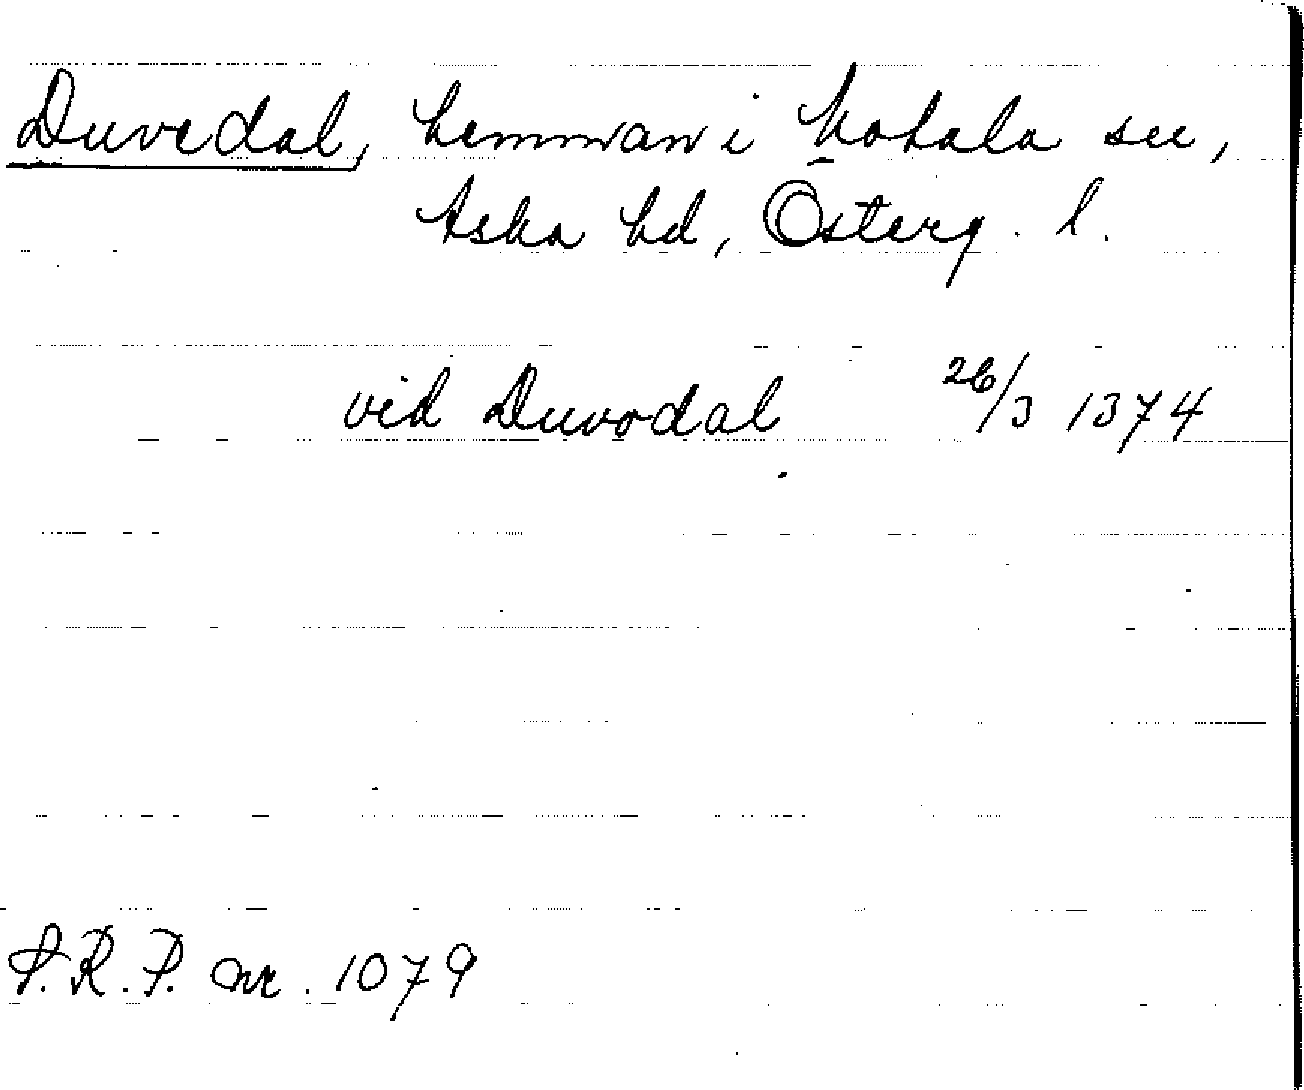 Duvedal, hemman i Motala sn,
Aska hd, Österg. l.
vid Duvodal 26/3 1374
S.R.P. nr. 1079